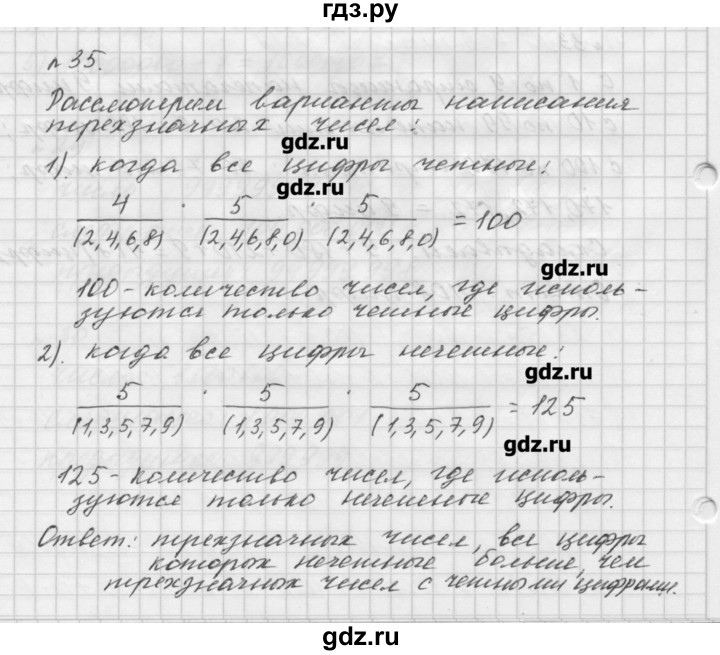 гдз.ру
№35.
Рассмотрим варианты написания
трехзначных чисел:
gdz.ru
1). когда все цифры четные:
gdz.ru
4 · 5 · 5
(2,4,6,8) (2,4,6,8,0) (2,4,6,8,0) = 100
gdz.ru
100 - количество чисел, где исполь-
зуются только четные цифры.
2). когда все цифры нечетные:
gdz.ru
5 · 5 · 5
(1,3,5,7,9) (1,3,5,7,9) (1,3,5,7,9) = 125
gdz.ru
125 - количество чисел, где исполь-
зуются только нечетные цифры.
Ответ: трехзначных чисел, все цифры
которых нечетные больше, чем
трехзначных чисел с четными цифрами.
gdz.ru
gdz.ru